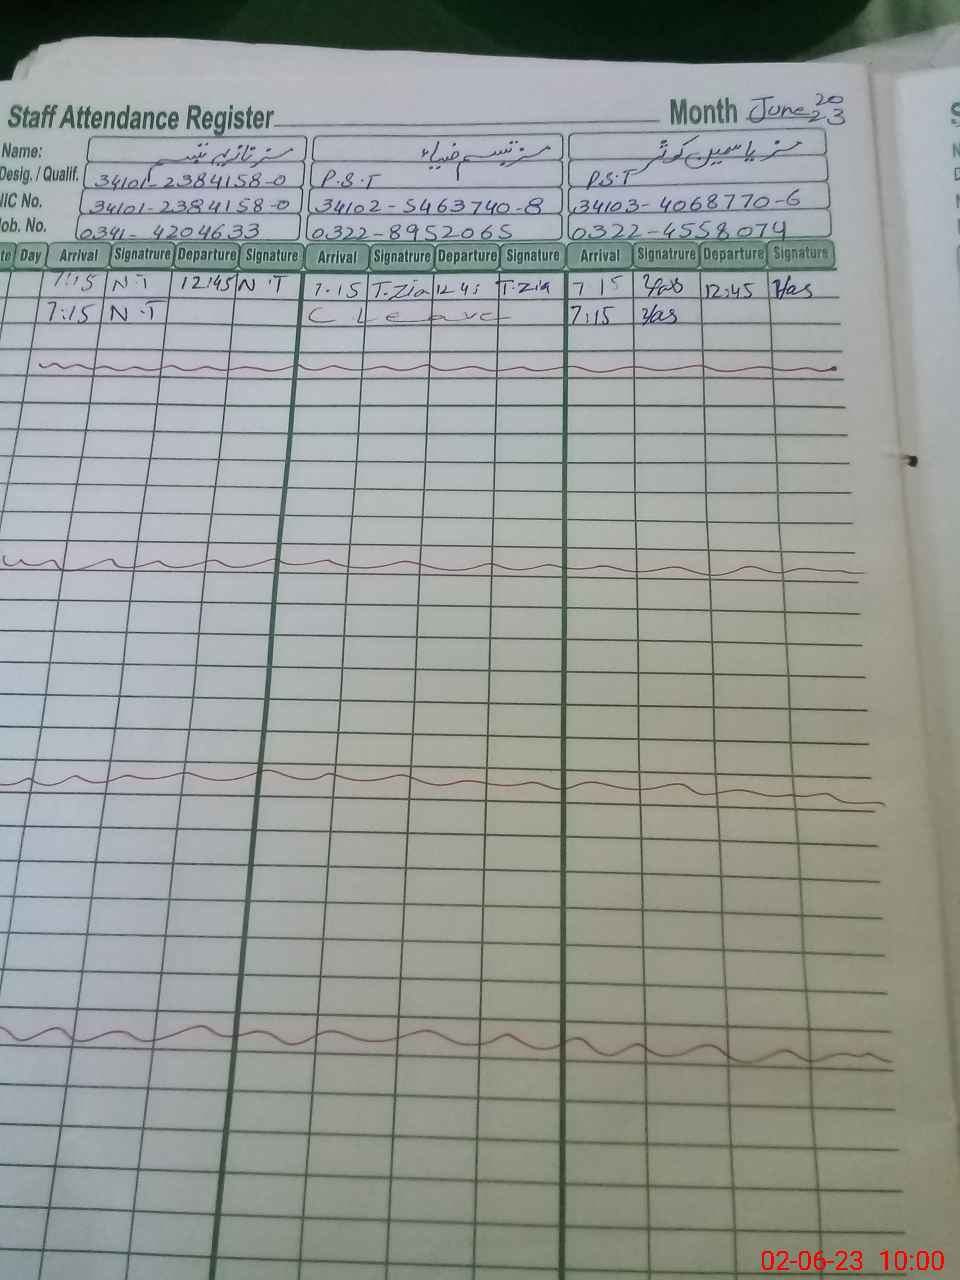 Staff Attendance Register Month June 2023
Name: مسز نازیہ تبسم مسز تبسم ضیاء مسز یاسمین کوثر
Desig. / Qualif. 34101-2384158-0 P.S.T P.S.T
NIC No. 34101-2384158-0 34102-5463740-8 34103-4068770-6
ob. No. 0341-4204633 0322-8952065 0322-4558074
te Day Arrival Signatrure Departure Signature Arrival Signatrure Departure Signature Arrival Signatrure Departure Signature
7:15 N.T 12:45 N.T 7.15 T.Zia 12 45 T.Zia 7 15 Yas 12:45 Yas
7:15 N.T C Leave 7:15 Yas
02-06-23 10:00